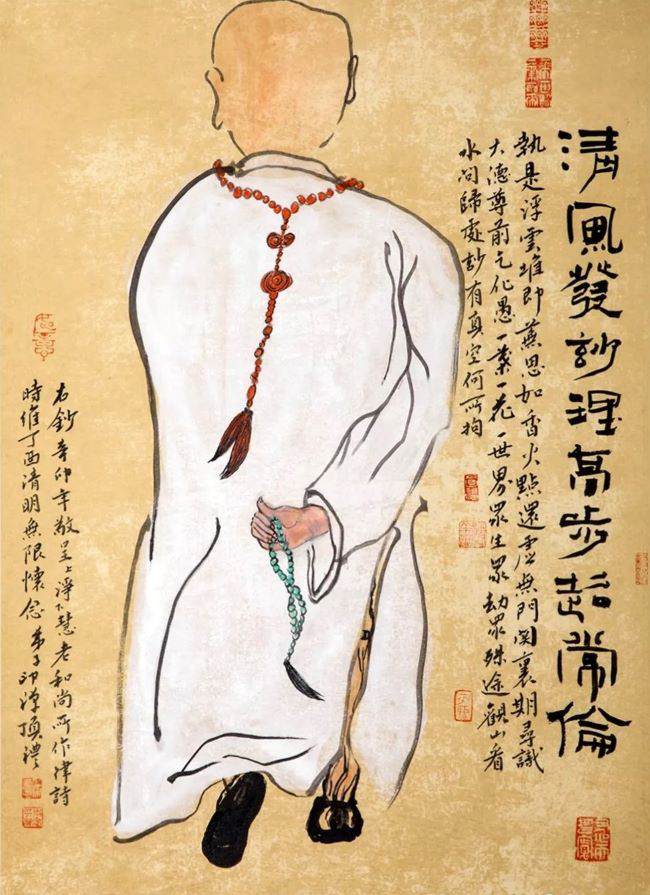 清風發玅理高步超常倫
執是浮雲堆即蕪思如香火點還虛無門関裏期尋識
大德尊前乞化愚一葉一花一世界眾生眾劫眾殊途觀山看
水問歸處玅有真空何所拘
右鈔辛卯年敬呈上淨下慧老和尚所作律詩
時維丁酉清明無限懷念弟子印頂禮